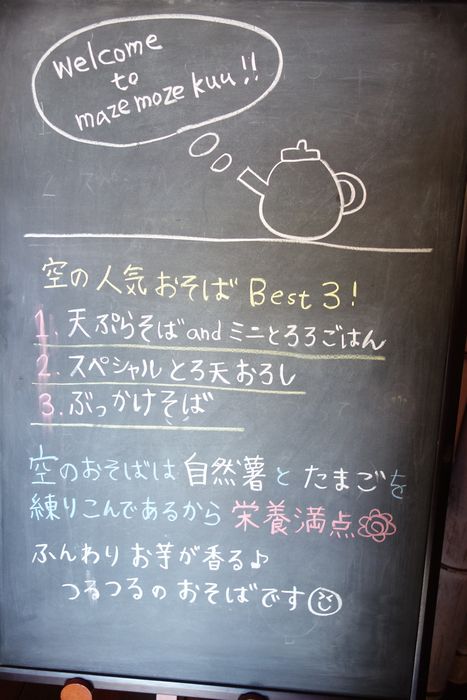 welcome
to
mazemoze kuu!!
空の人気おそば Best 3!
1. 天ぷらそば and ミニとろろごはん
2. スペシャルとろ天おろし
3. ぶっかけそば
空のおそばは自然薯とたまごを
練りこんであるから栄養満点
ふんわりお芋が香る♪
つるつるのおそばです